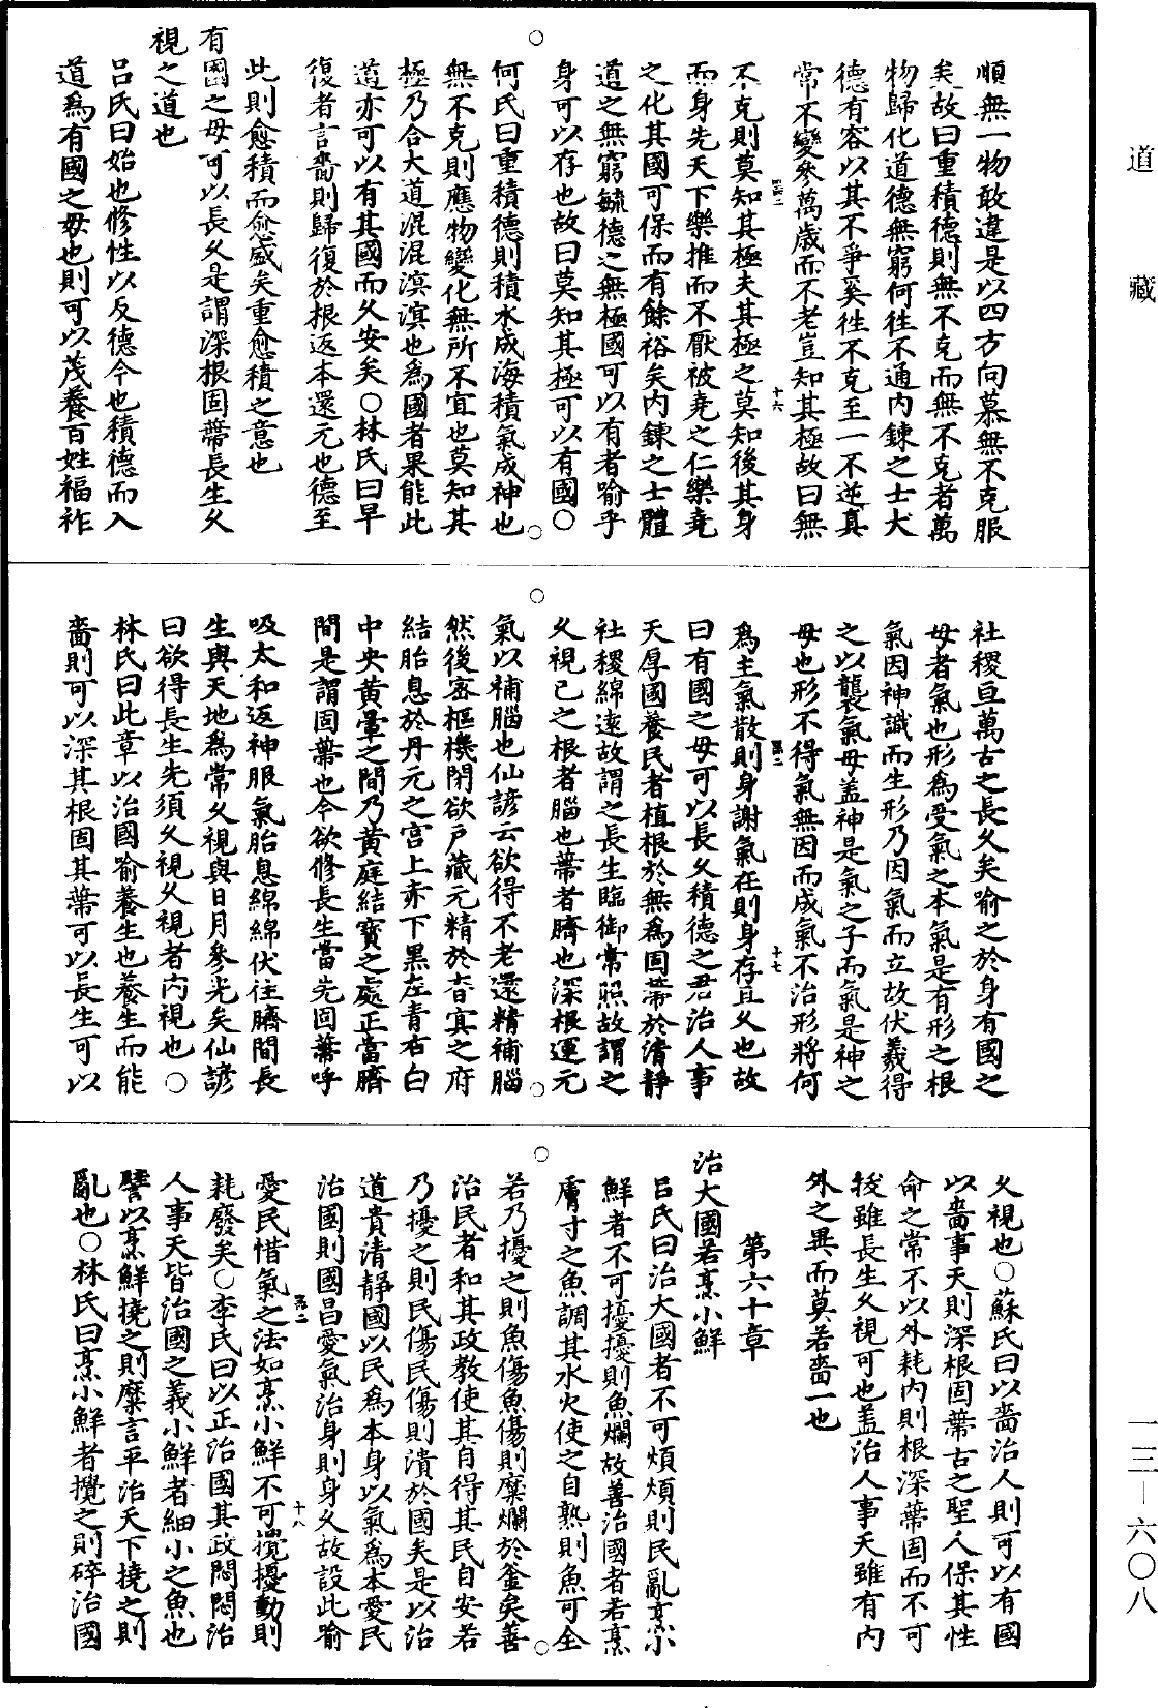 道藏
一三—六〇八
順無一物敢違是以四方向慕無不克服
矣故曰重積德則無不克而無不克者萬
物歸化道德無窮何往不通內鍊之士大
德有容以其不爭奚往不克至一不逆真
常不變參萬歲而不老豈知其極故曰無
十六
不克則莫知其極夫其極之莫知後其身
而身先天下樂推而不厭被堯之仁樂堯
之化其國可保而有餘裕矣內鍊之士體
道之無窮毓德之無極國可以有者喻乎
身可以存也故曰莫知其極可以有國○
何氏曰重積德則積水成海積氣成神也
無不克則應物變化無所不宜也莫知其
極乃合大道混混溟溟也為國者果能此
道亦可以有其國而久安矣○林氏曰早
復者言嗇則歸復於根返本還元也德至
此則愈積而愈盛矣重愈積之意也
有國之母可以長久是謂深根固蔕長生久
視之道也
呂氏曰始也修性以反德今也積德而入
道為有國之母也則可以茂養百姓福祚
社稷亘萬古之長久矣喻之於身有國之
母者氣也形為受氣之本氣是有形之根
氣因神識而生形乃因氣而立故伏羲得
之以襲氣母蓋神是氣之子而氣是神之
母也形不得氣無因而成氣不治形將何
十七
為主氣散則身謝氣在則身存且久也故
曰有國之母可以長久積德之君治人事
天厚國養民者植根於無為固蔕於清靜
社稷綿遠故謂之長生臨御常照故謂之
久視已之根者腦也蔕者臍也深根運元
氣以補腦也仙諺云欲得不老還精補腦
然後密樞機閉欲戶藏元精於杳冥之府
結胎息於丹元之宮上赤下黑左青右白
中央黃暈之間乃黃庭結寶之處正當臍
間是謂固蔕也今欲修長生當先固蔕呼
吸太和返神服氣胎息綿綿伏住臍間長
生與天地為常久視與日月參光矣仙諺
曰欲得長生先須久視久視者內視也○
林氏曰此章以治國喻養生也養生而能
嗇則可以深其根固其蔕可以長生可以
久視也○蘇氏曰以嗇治人則可以有國
以嗇事天則深根固蔕古之聖人保其性
命之常不以外耗內則根深蔕固而不可
拔雖長生久視可也蓋治人事天雖有內
外之異而莫若嗇一也
第六十章
治大國若烹小鮮
呂氏曰治大國者不可煩煩則民亂烹小
鮮者不可擾擾則魚爛故善治國者若烹
膚寸之魚調其水火使之自熟則魚可全
若乃擾之則魚傷魚傷則糜爛於釜矣善
治民者和其政教使其自得其民自安若
乃擾之則民傷民傷則潰於國矣是以治
道貴清靜國以民為本身以氣為本愛民
治國則國昌愛氣治身則身久故設此喻
十八
愛民惜氣之法如烹小鮮不可撓擾動則
耗廢矣○李氏曰以正治國其政悶悶治
人事天皆治國之義小鮮者細小之魚也
譬以烹鮮撓之則糜言平治天下撓之則
亂也○林氏曰烹小鮮者攪之則碎治國